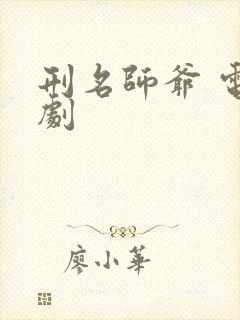 刑名師爺 電
劇
廖小華